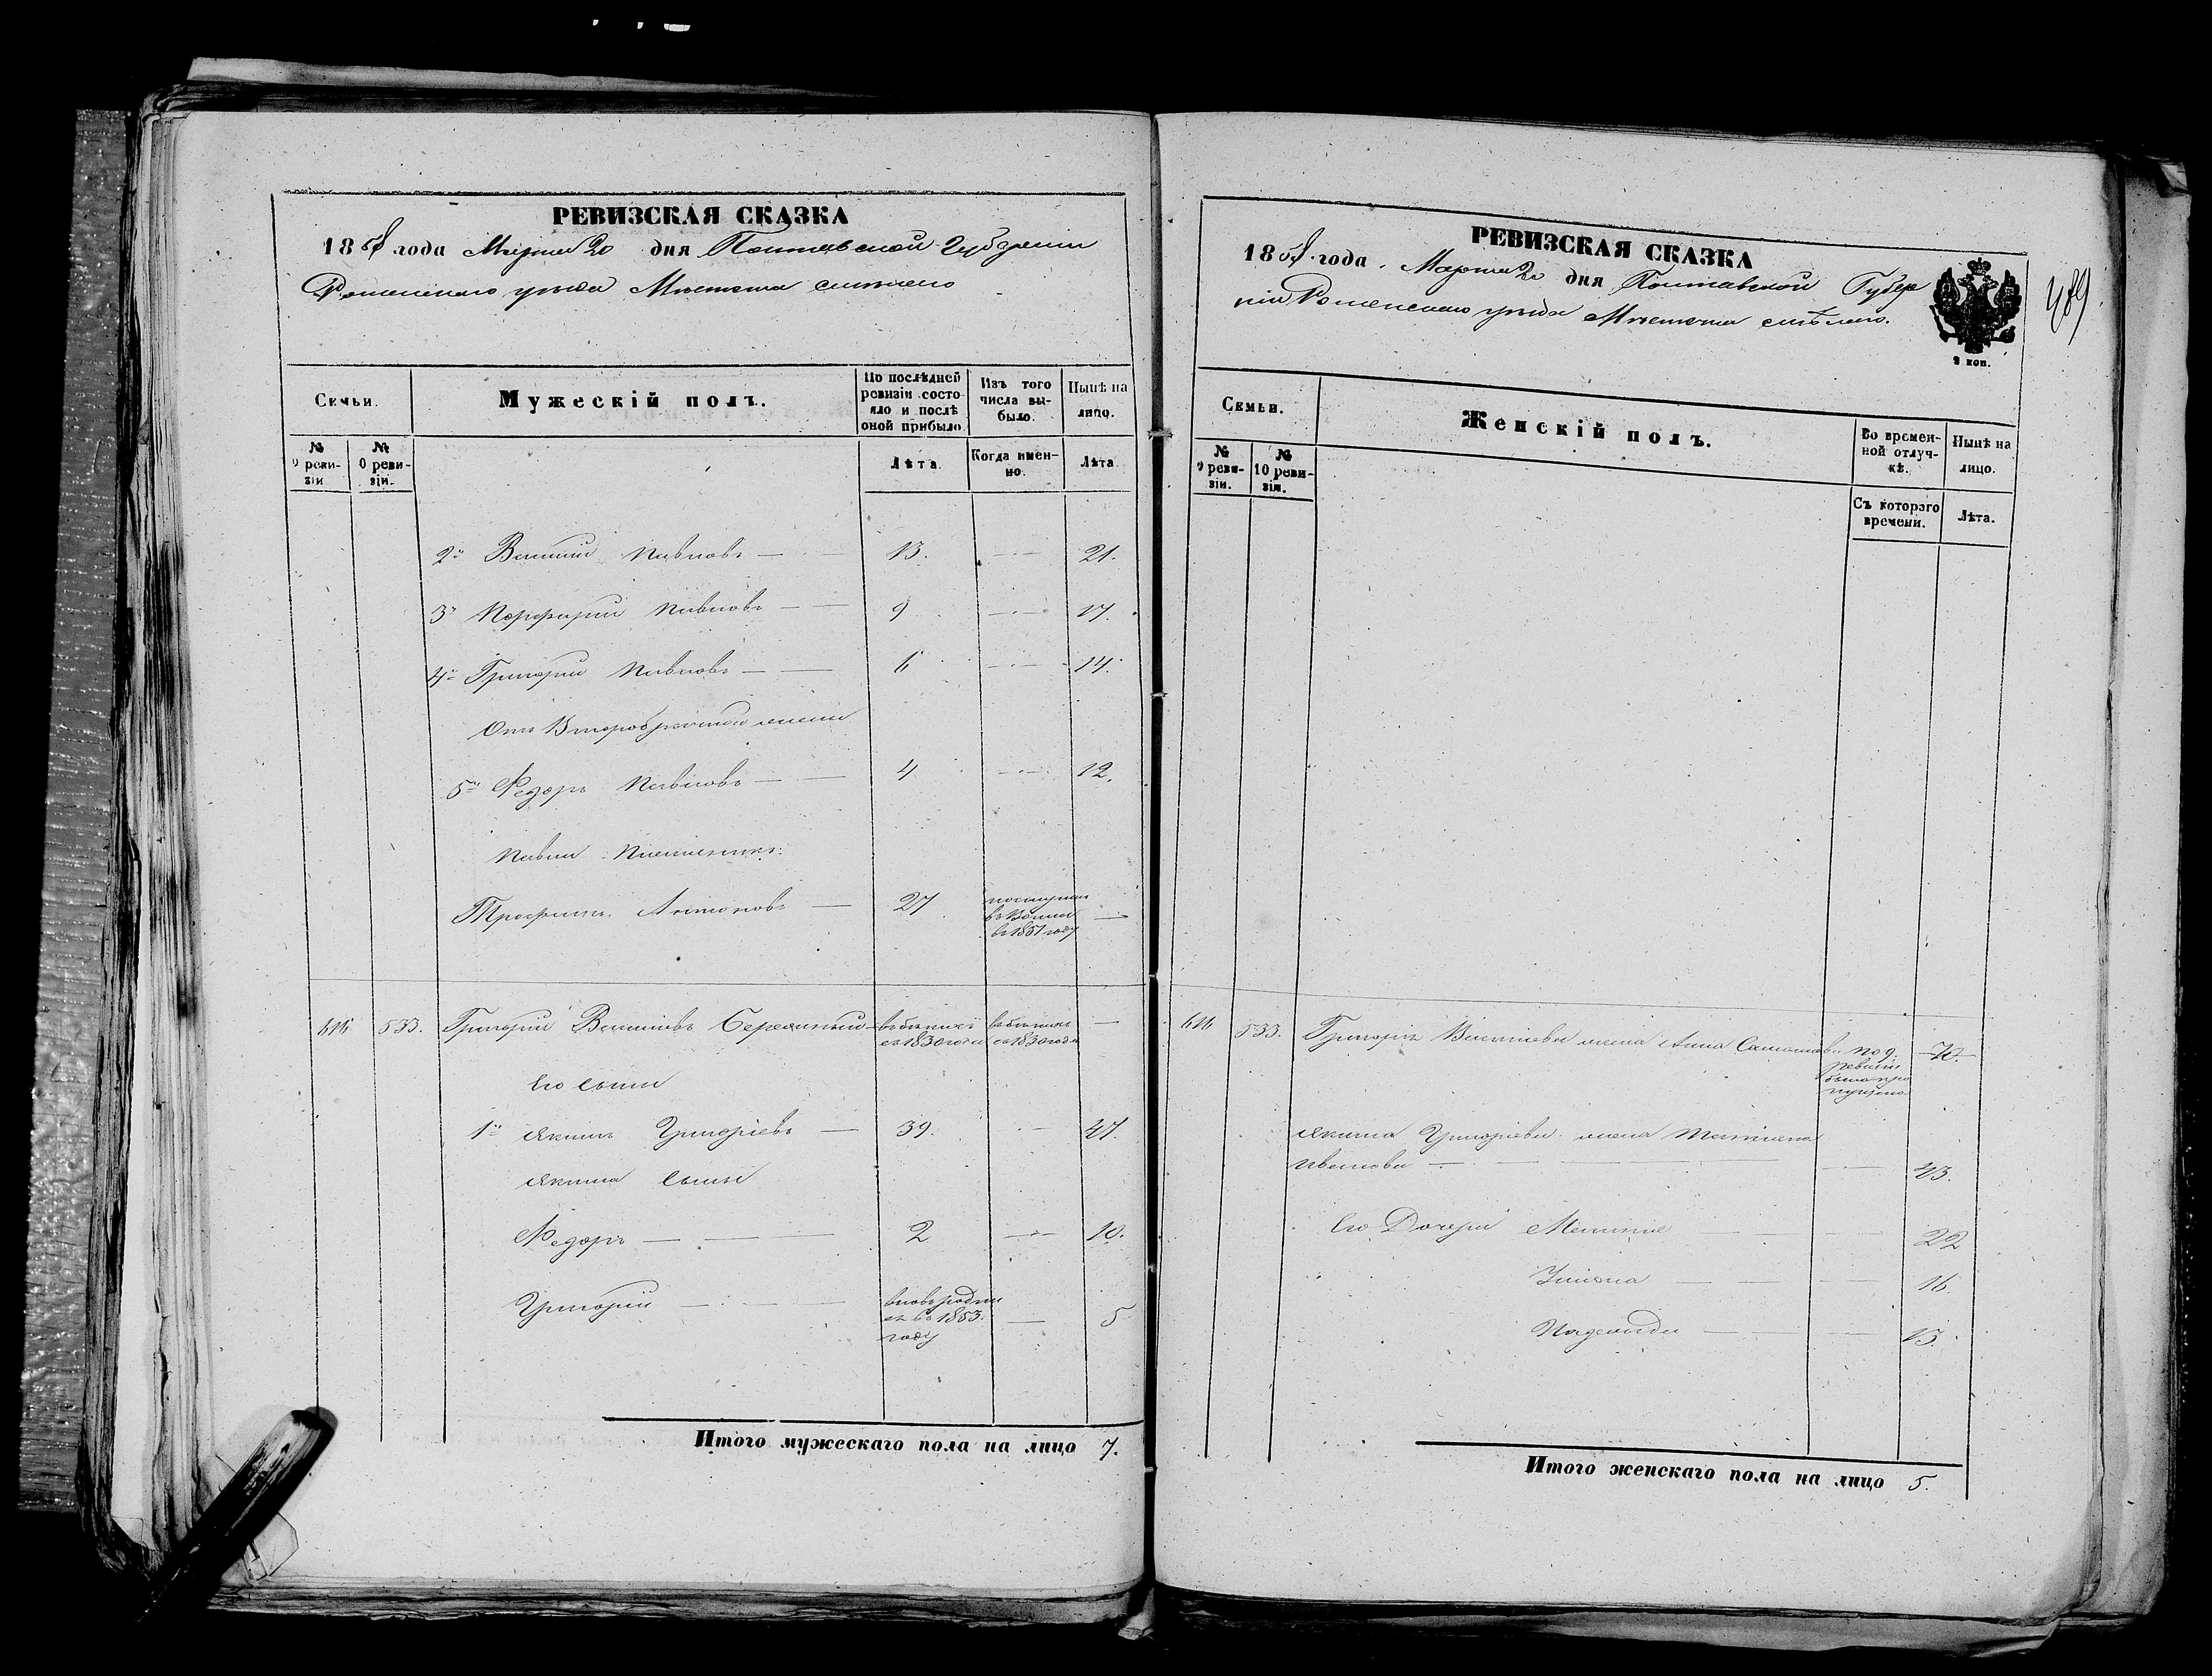 РЕВИЗСКАЯ СКАЗКА
1858 года Марта 20 дня Полтавской Губерніи
Роменскаго уѣзда Мѣстечка Смѣлаго
Семьи.
Мужескій полъ.
По послѣдней ревизіи состояло и послѣ оной прибыло.
Изъ того числа выбыло.
Нынѣ на лицо.
№ 9 ревизіи
№ 10 ревизіи.
Лѣта.
Когда именно.
Лѣта.
2й Василій Павловъ — 13. — 21.
3й Порфирій Павловъ — 9 — 17.
4й Григорій Павловъ — 6 — 14.
Отъ Второбрачной жены
5й Федоръ Павловъ — 4 — 12.
Павла Племянникъ
Трофимъ Антоновъ — 27
поступил
въ
въ 1851 году —
616 533. Григорій Васильевъ — въ бѣгахъ съ 1830 года въ бѣгахъ съ 1830 года —
Его Сыны
1й Якимъ Григоріевъ — 39. — 47.
Якима Сыны
Федоръ — 2 — 10.
Григорій —
вновь родил
ся въ 1853.
году — 5
Итого мужескаго пола на лицо 7.
РЕВИЗСКАЯ СКАЗКА
1858 года. Марта 20 дня Полтавской Губер
ніи Роменскаго уѣзда Мѣстечка Смѣлаго.
2 коп.
489.
Семьи.
Женскій полъ.
Во временной отлучкѣ.
Нынѣ на лицо.
№ 9 ревизіи.
№ 10 ревизіи.
Съ котораго времени.
Лѣта.
616 533. Григорія Васильева жена Анна — 70.
по 9.
ревизіи
была про
пущена
Якима Григоріева жена Татіана
Иванова — 43.
Его Дочери — 22
16.
Надежда — 13.
Итого женскаго пола на лицо 5.